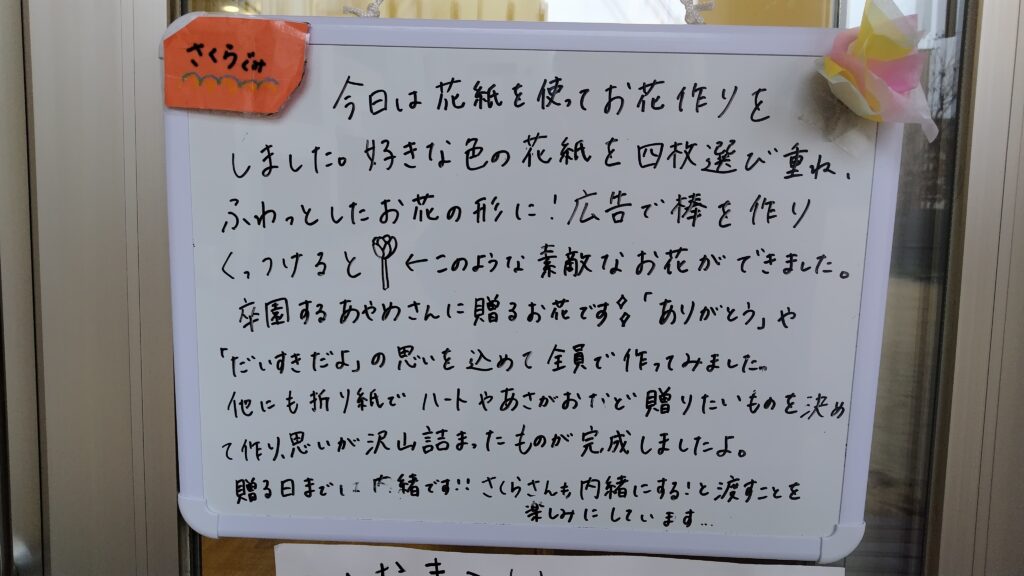 さくらぐみ
今日は花紙を使ってお花作りを
しました。好きな色の花紙を四枚選び重ね、
ふわっとしたお花の形に!広告で棒を作り
くっつけると ←このような素敵なお花ができました。
卒園するあやめさんに贈るお花です!!「ありがとう」や
「だいすきだよ」の思いを込めて全員で作ってみました。
他にも折り紙でハートやあさがおなど贈りたいものを決め
て作り、思いが沢山詰まったものが完成しましたよ。
贈る日までは内緒です!!さくらさんも内緒にする!と渡すことを
楽しみにしています…